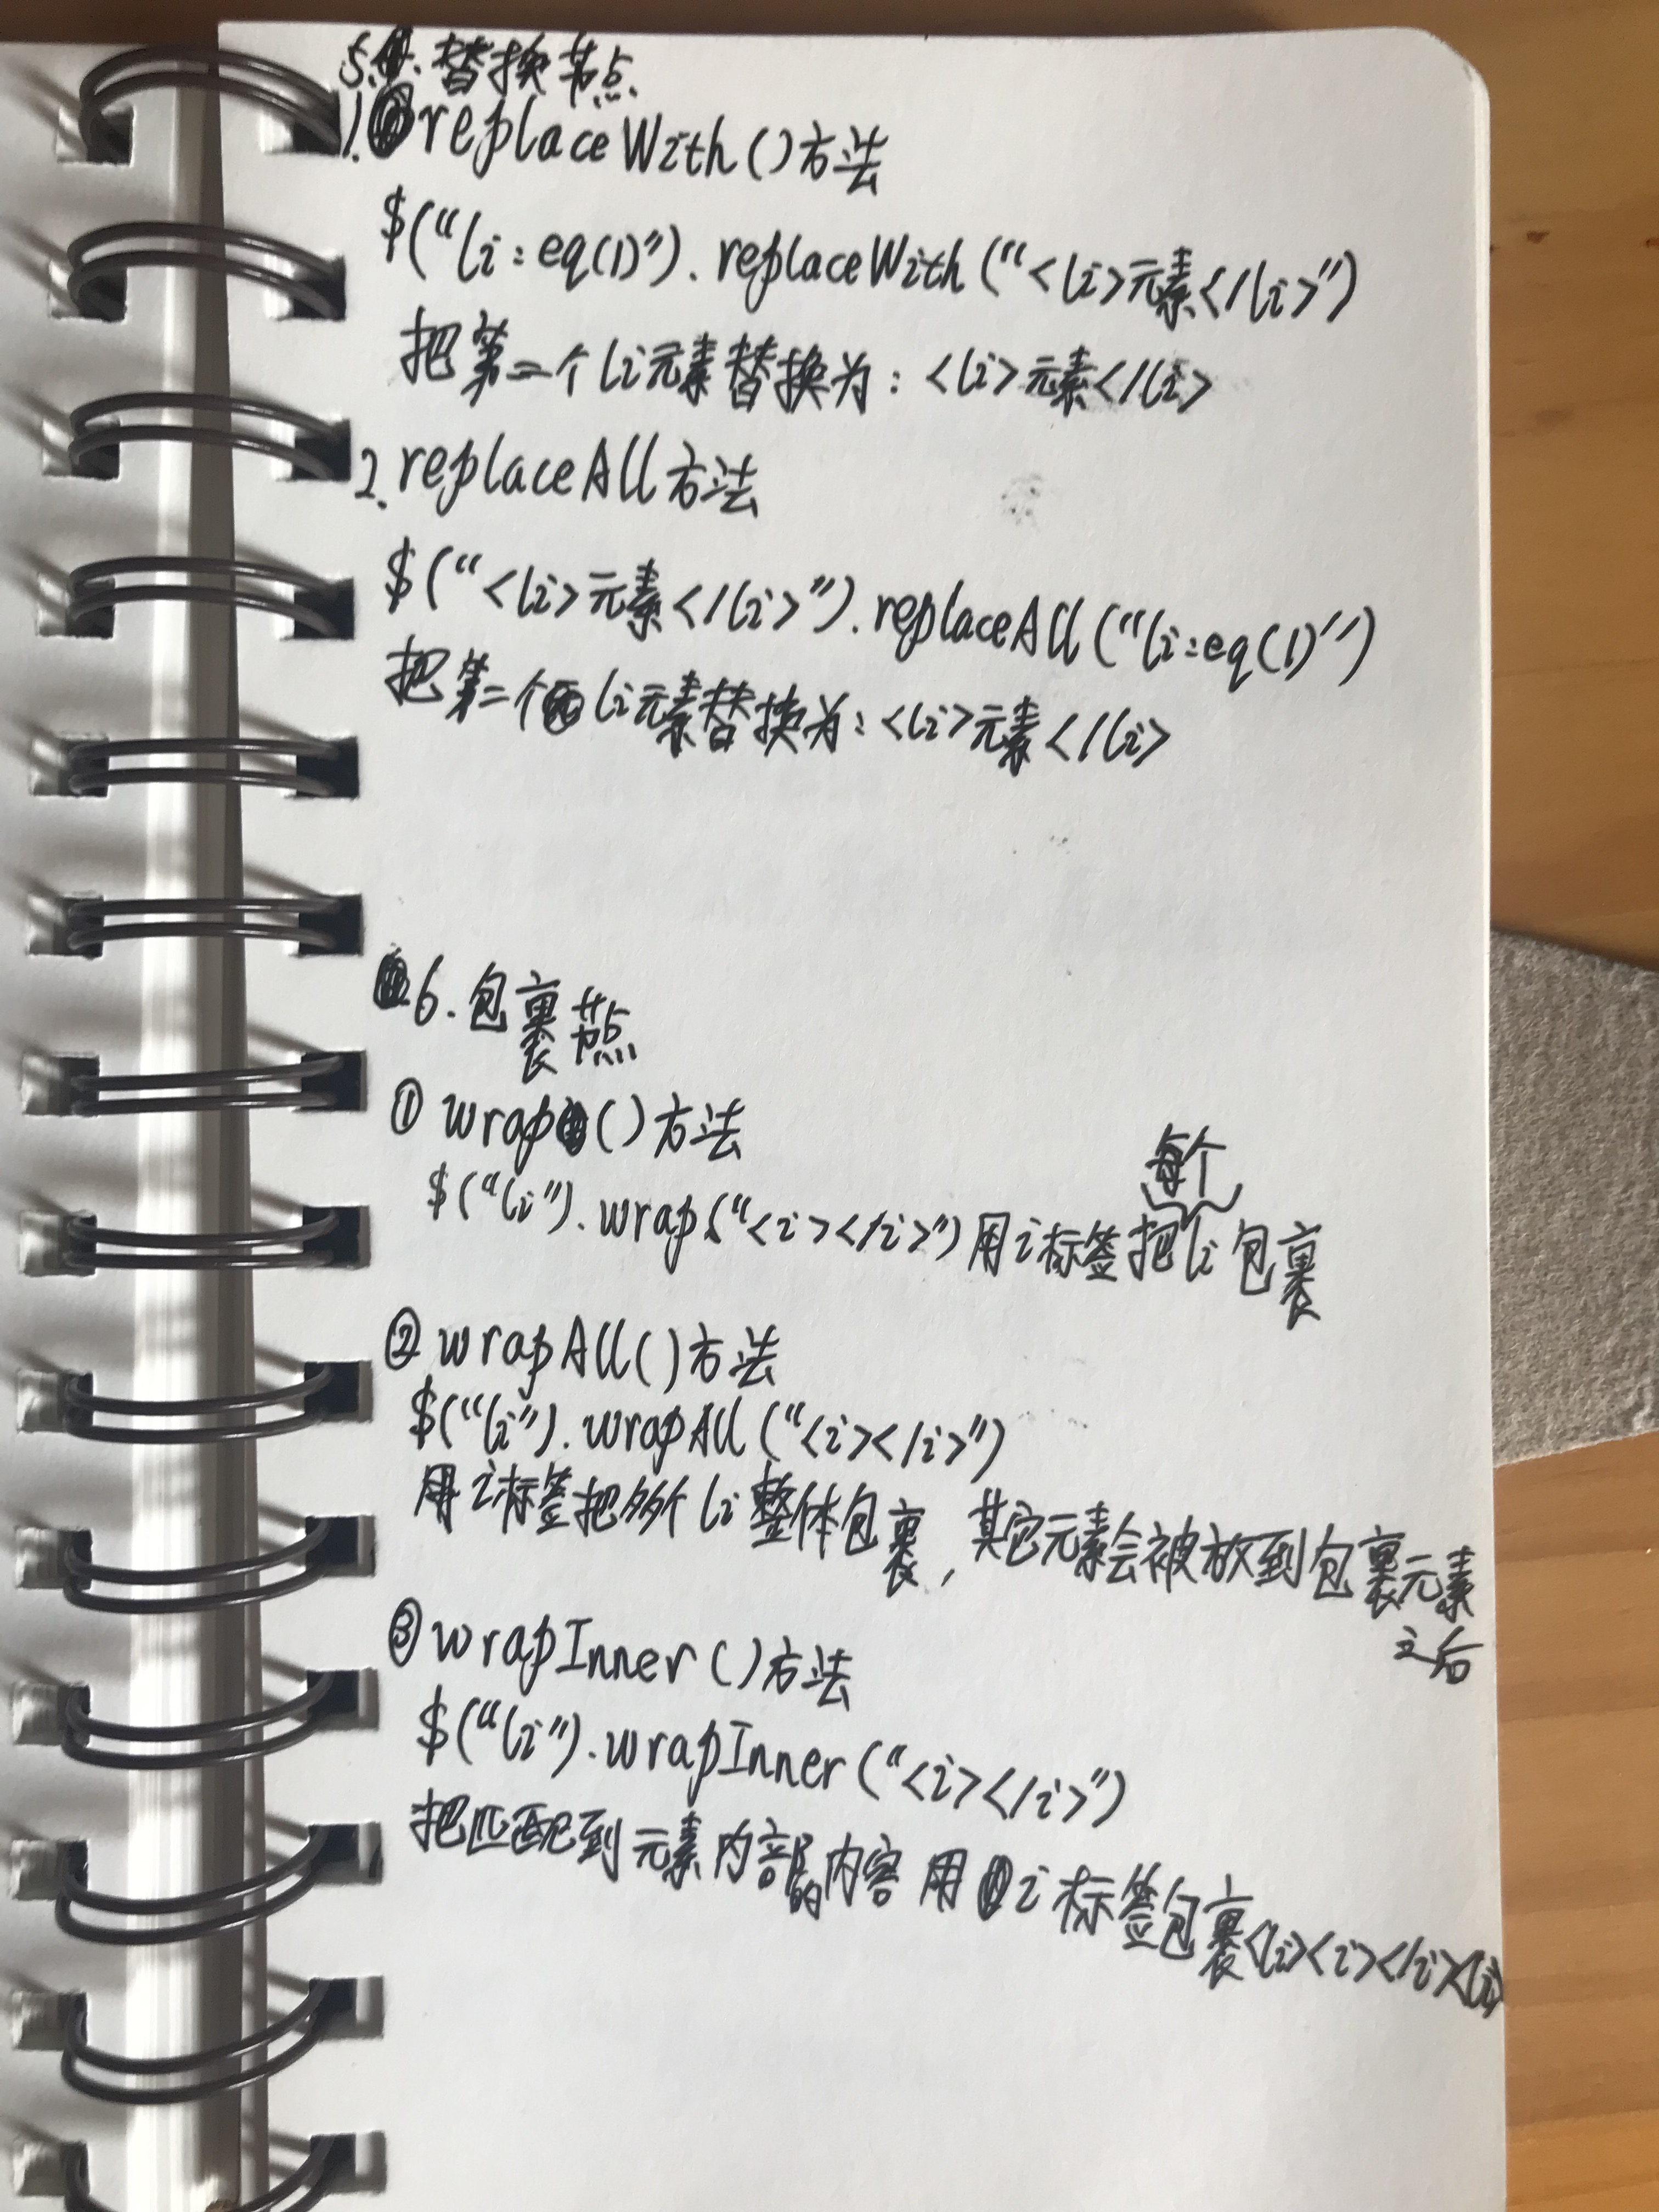 5.替换节点
1.replaceWith()方法
$("li:eq(1)").replaceWith("<li>元素</li>")
把第二个li元素替换为:<li>元素</li>
2.replaceAll方法
$("<li>元素</li>").replaceAll("li:eq(1)")
把第二个li元素替换为:<li>元素</li>
6.包裹节点
① wrap()方法
每个
$("li").wrap("<i></i>")用i标签把li包裹
② wrapAll()方法
$("li").wrapAll("<i></i>")
用i标签把多个li整体包裹,其它元素会被放到包裹元素
之后
③ wrapInner()方法
$("li").wrapInner("<i></i>")
把匹配到元素内部的内容用i标签包裹<li><i></i><li>